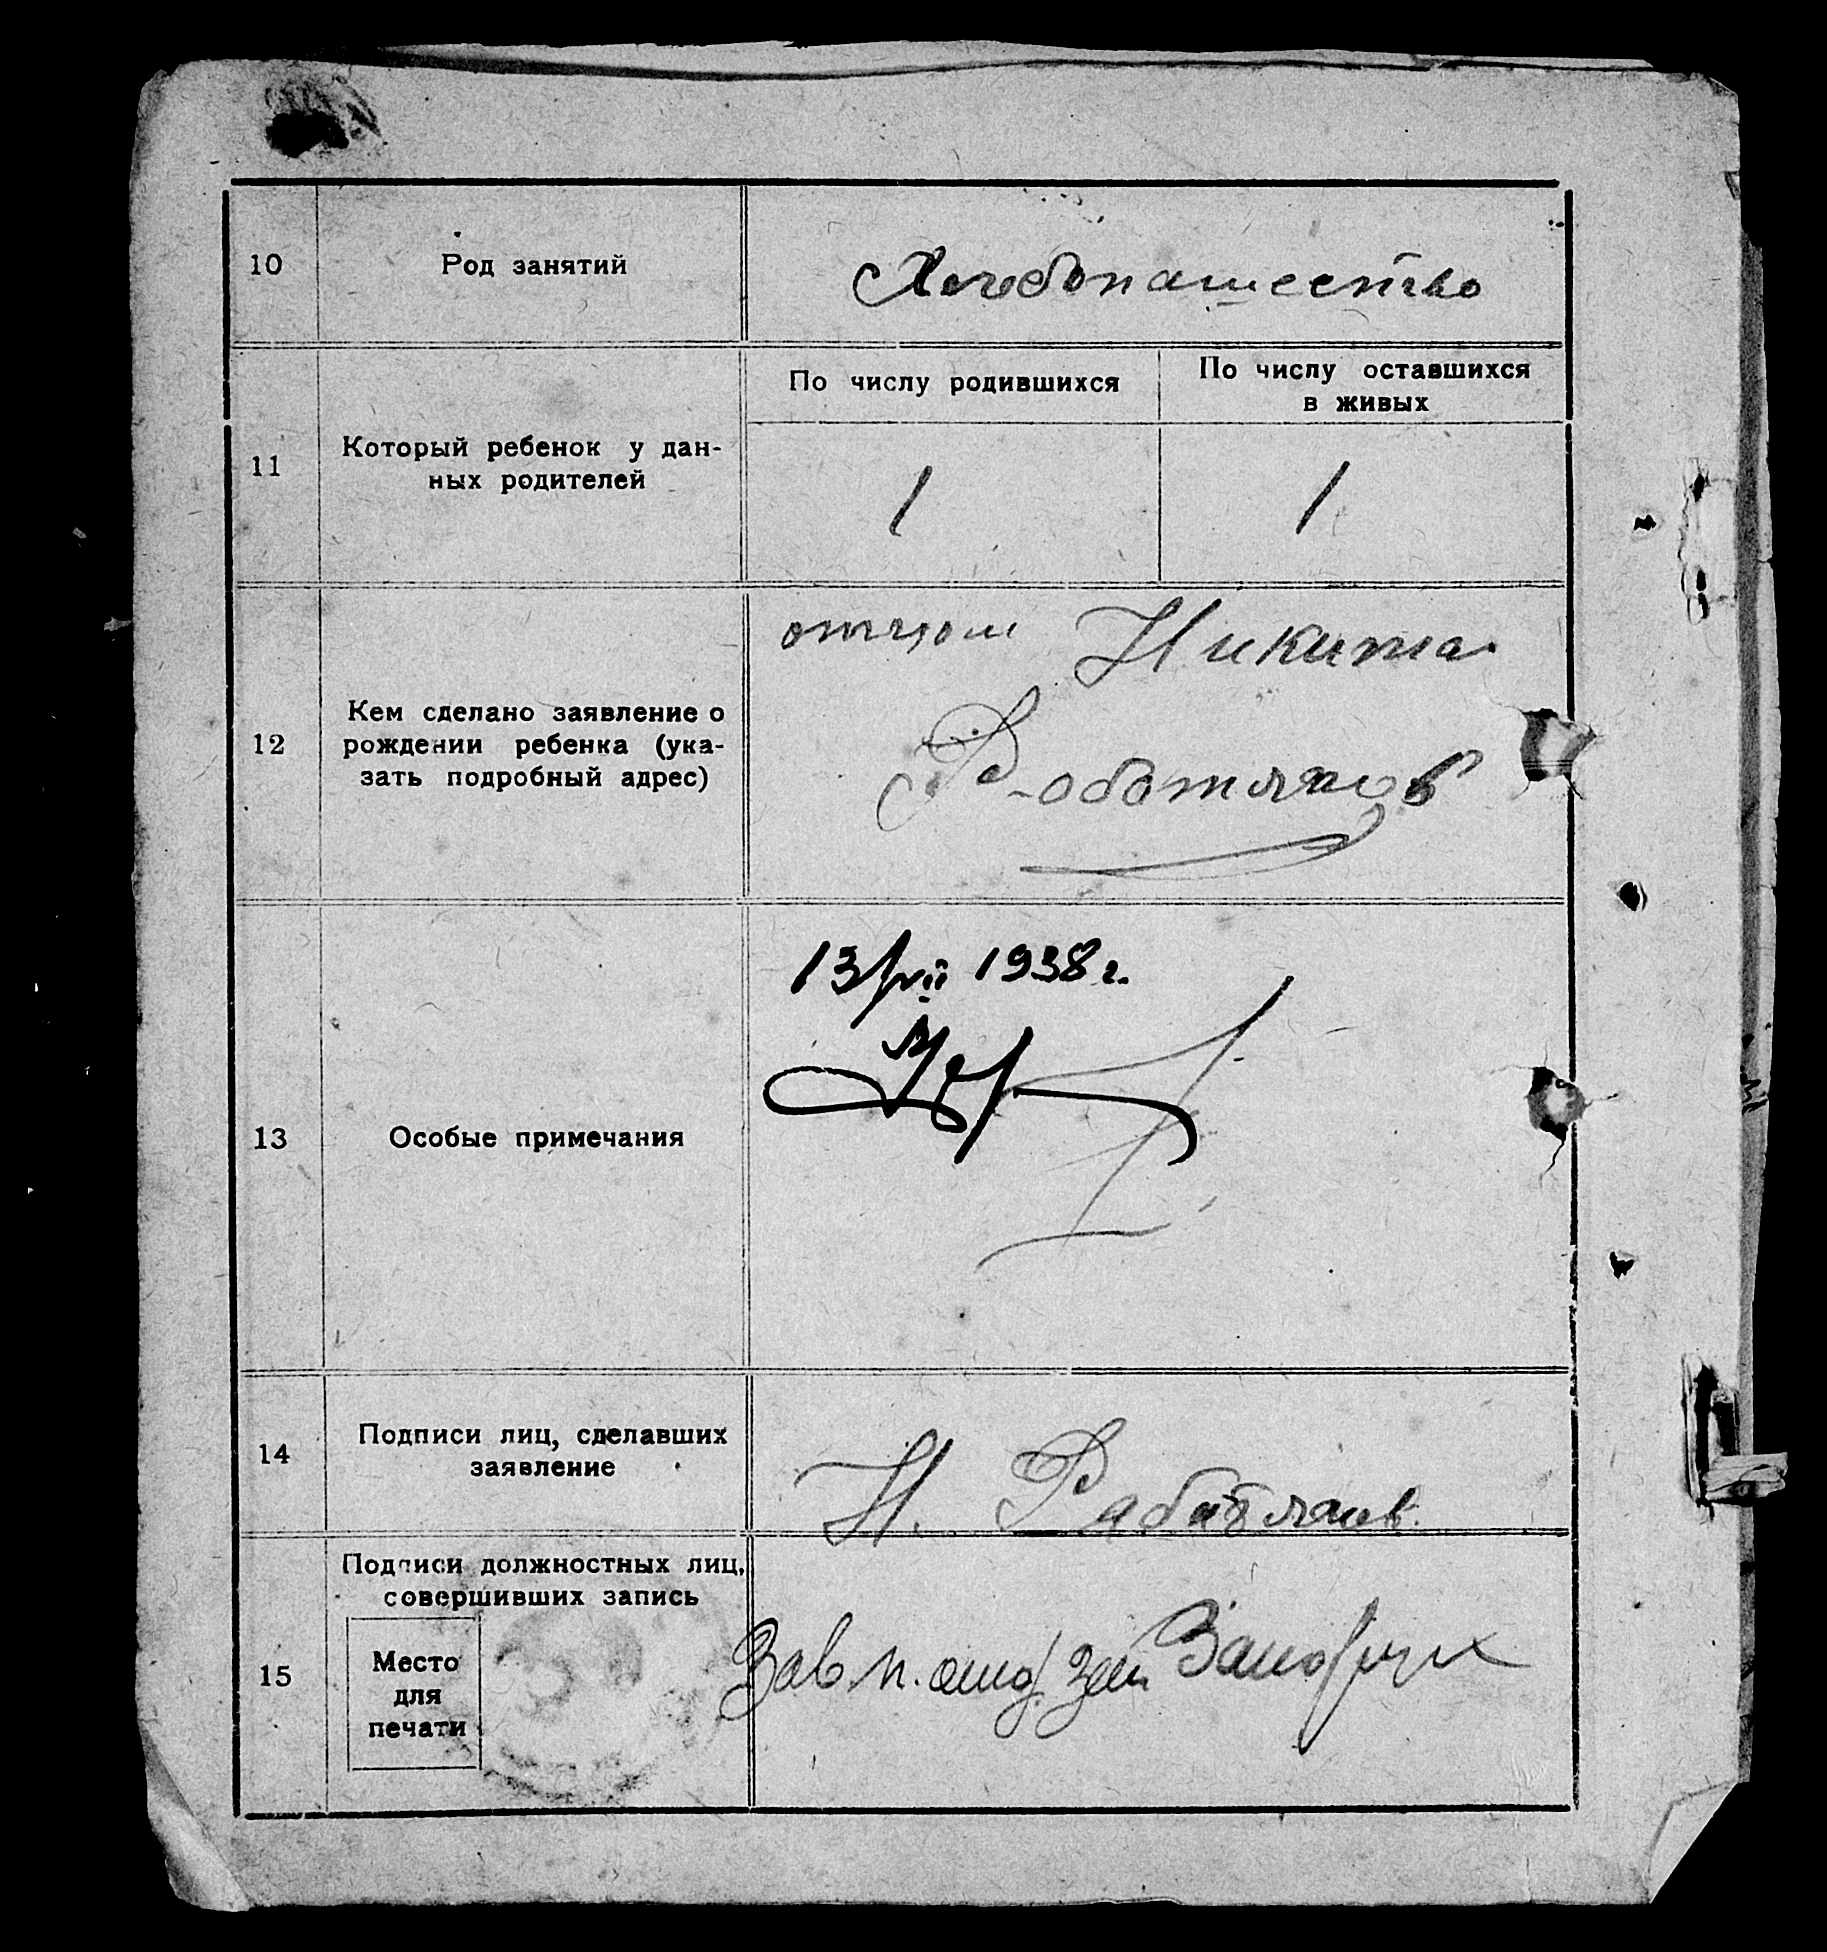 10 Род занятий Хлебопашество
По числу родившихся
По числу оставшихся
в живых
11
Который ребенок у дан-
ных родителей
1 1
отцом Никита
12
Кем сделано заявление о
рождении ребенка (ука-
зать подробный адрес)
13/VII 1938 г.
13 Особые примечания
14
Подписи лиц, сделавших
заявление
Н.
Подписи должностных лиц,
совершивших запись
15
Место
для
печати
Зав